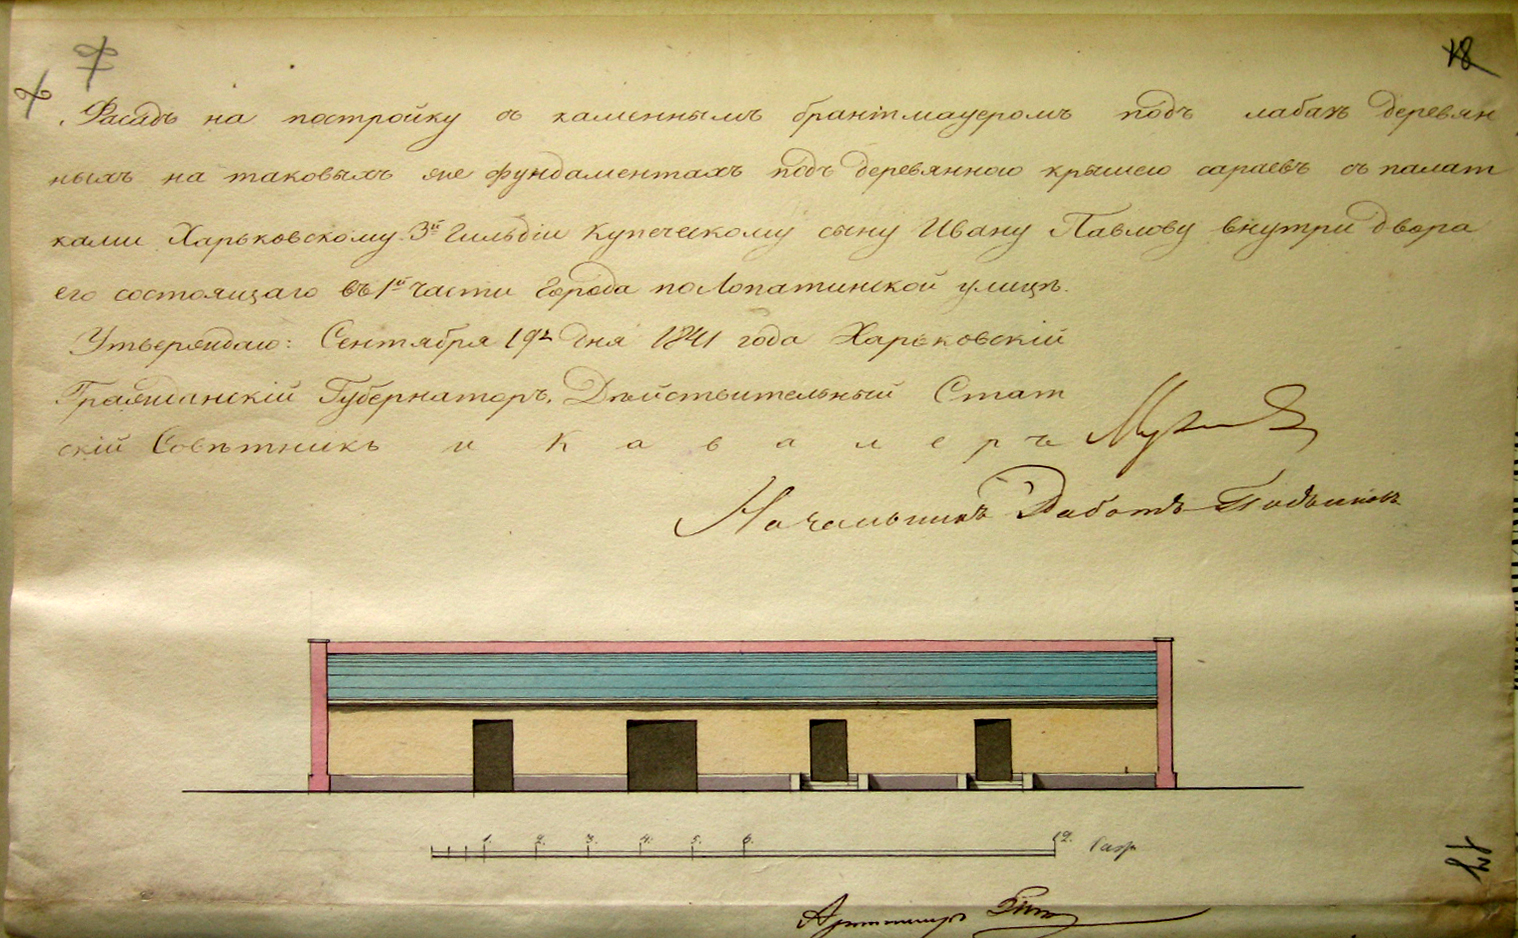 18
Фасадъ на постройку съ каменнымъ брантмауеромъ подъ лабазъ деревян
ныхъ на таковыхъ же фундаментахъ подъ деревянною крышею сараевъ съ палат
ками Харьковскому 3й Гильдіи купеческому сыну Ивану Павлову внутри двора
его состоящаго въ 1й части города по Лопатинской улицѣ.
Утверждаю: Сентября 19го дня 1841 года Харьковскій
Гражданскій Губернаторъ, Дѣйствительный Стат
скій Совѣтникъ и Кавалеръ
Начальникъ Работъ
1. 2. 3. 4. 5. 6. 12. Саж